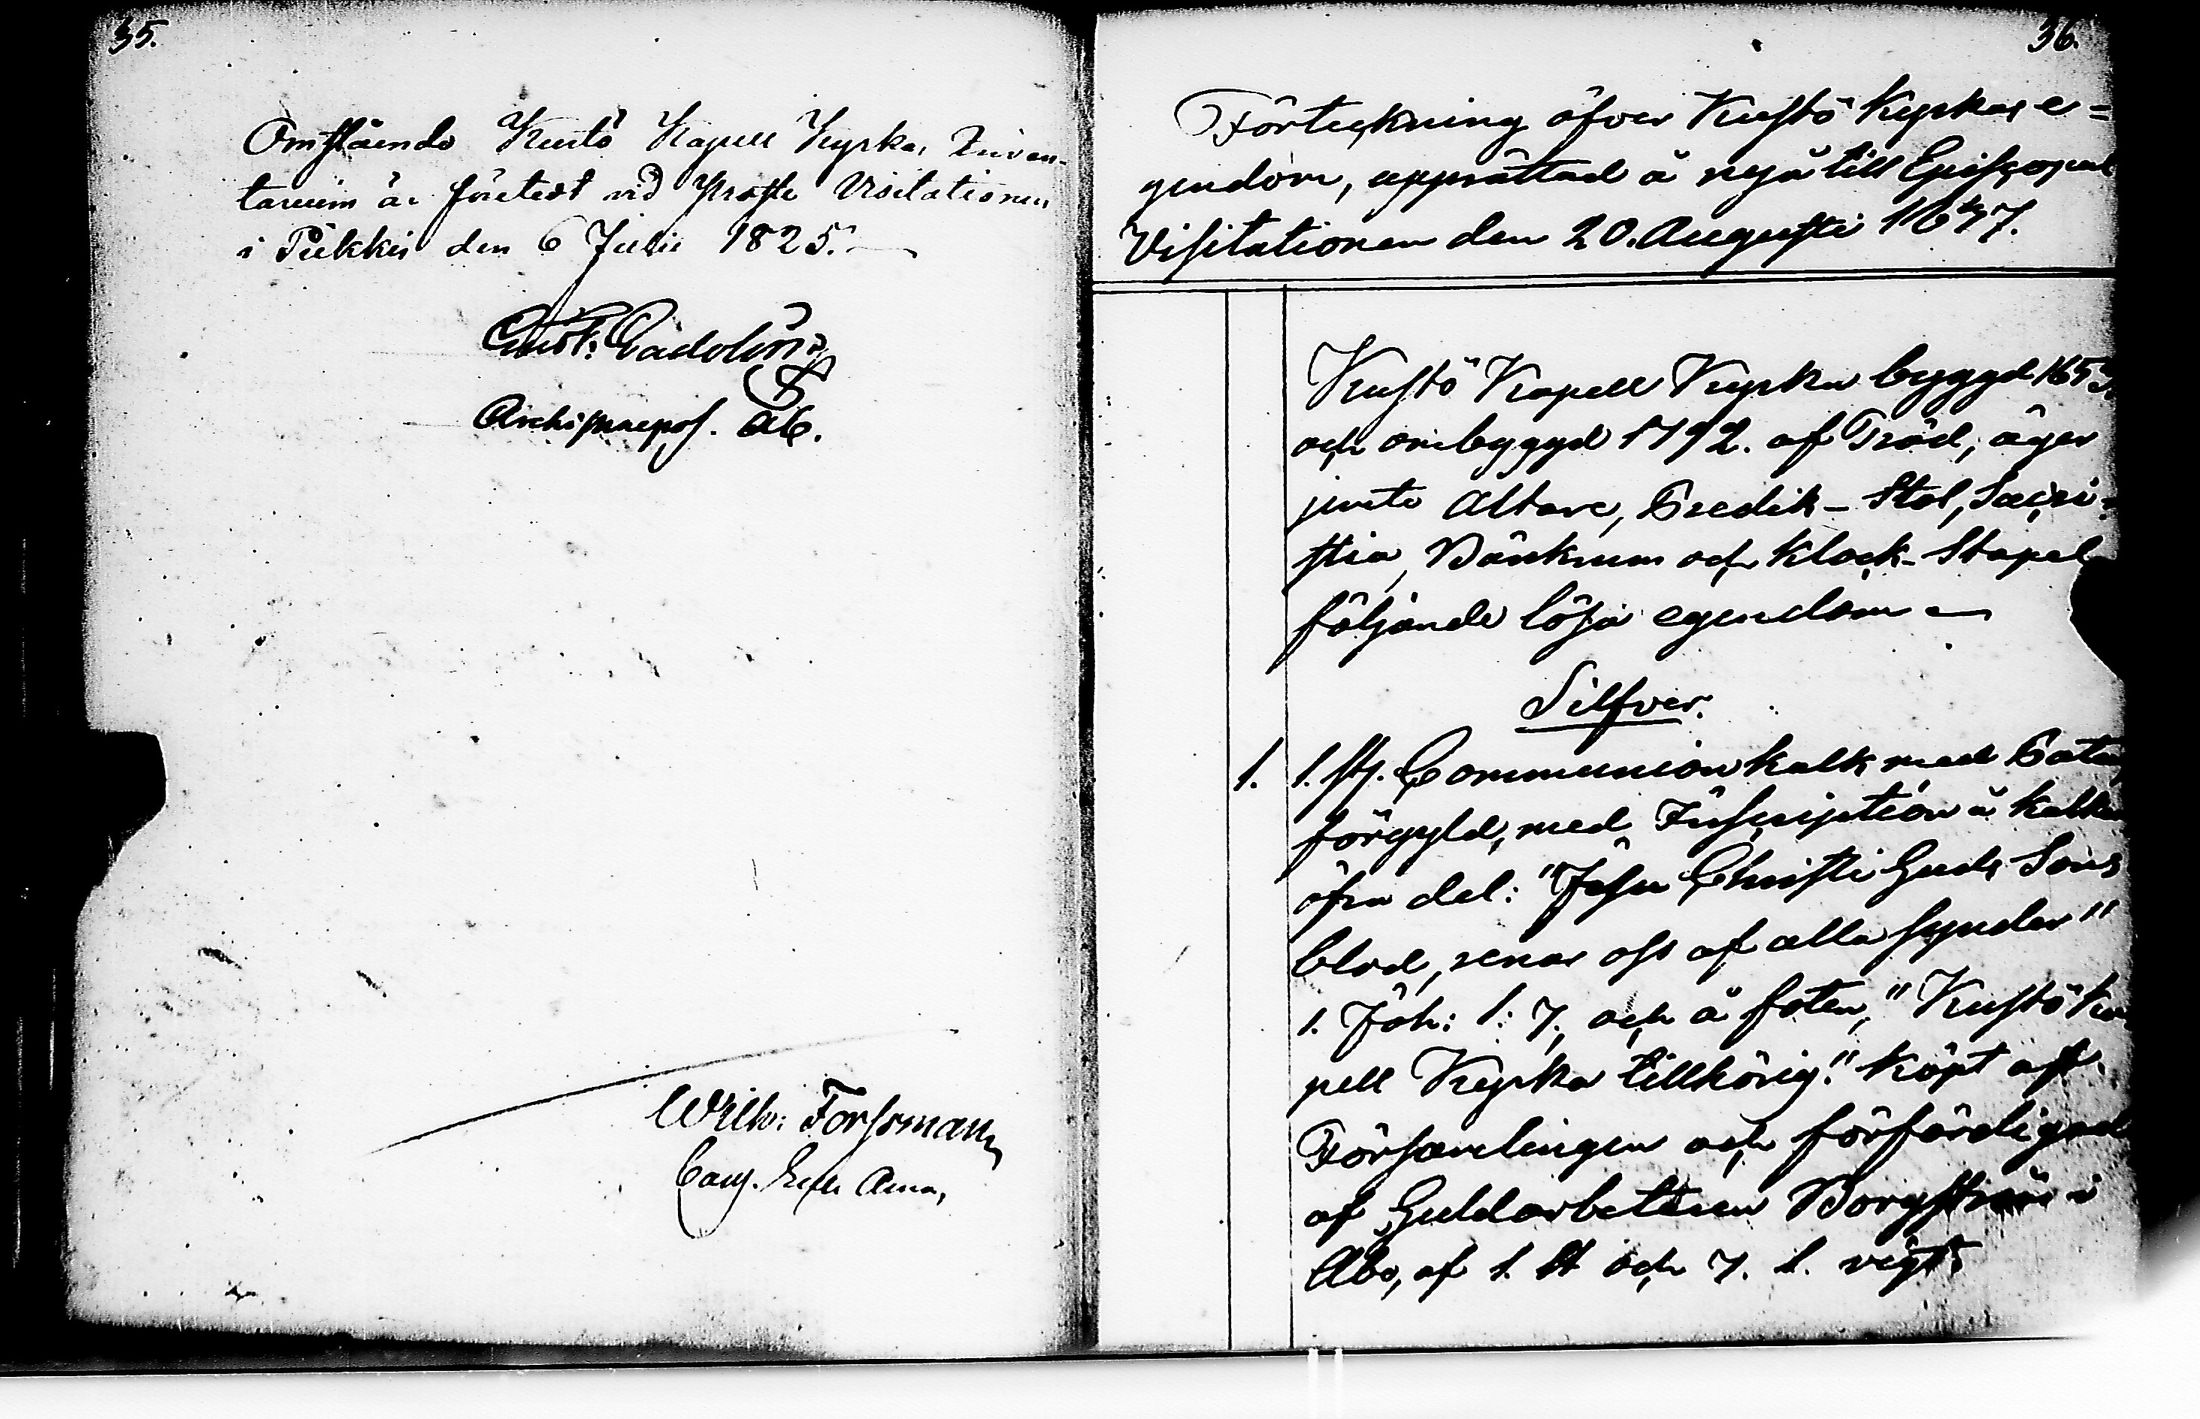 35.
Omstående Kustö Kapell Kyrkas Inven-
tarium är företedt vid Prosts Visitationen
i Pikkis den 6 Julii 1825.
Gust: Gadolin
Archipraepos. Ab.
Wilh: Forssman
36.
Förteckning öfver Kustö Kyrkas e=
gendom, upprättad å nyå till Episcopal
Visitationen den 20. Augusti
Kustö Kapell Kyrka byggd 165
och ombyggd 1792. af Träd, äger
jemte Altare, Predik-Stol, Sacri-
stia, Bänkrum och Klock-Stapel
följande lösa egendom
Silfver.
1. 1. st. Communion kalk med Paten,
förgyld, med Inscription å kalkens
öfra del: "Jesu Christi Guds Sons
blod, renar oss af alla synder"
1. Joh: 1: 7, och å foten, "Kustö Ka
pell Kyrka tillhörig." köpt af
Församlingen och förfärdigad
af Guldarbetaren Borgström i
Åbo, af 1. ℔ och 7. l. vigt